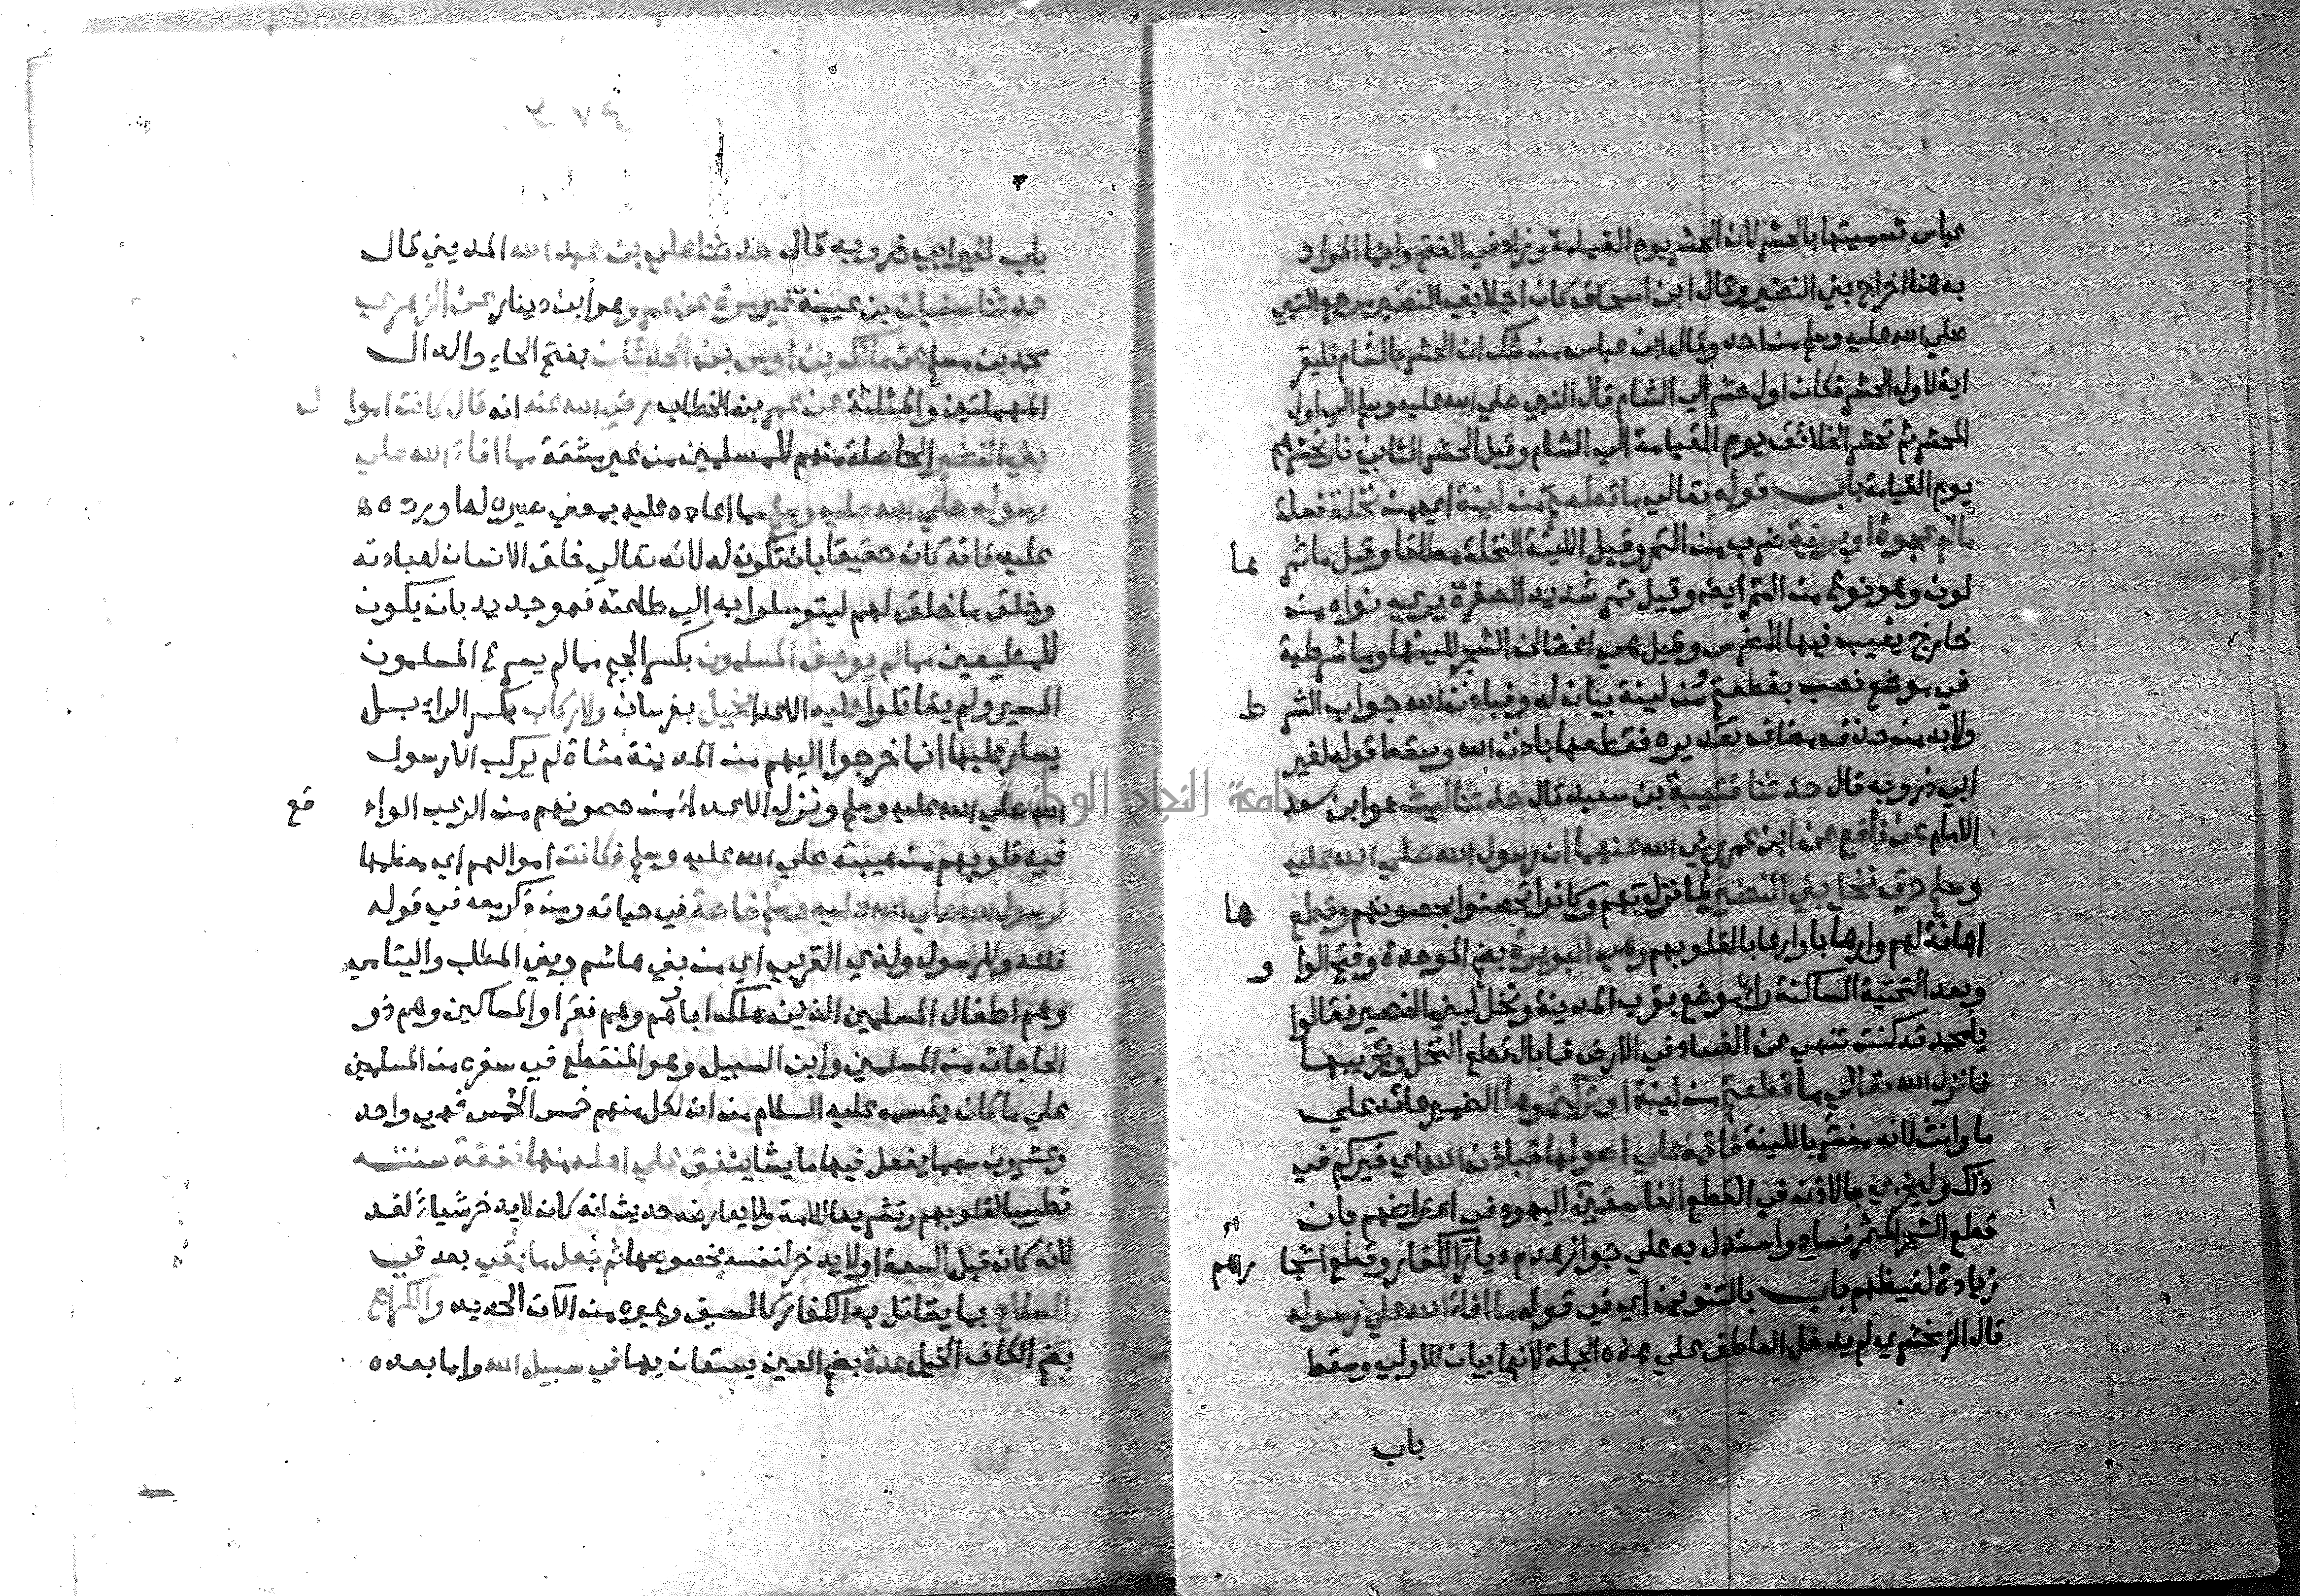 عباس تسميتها بالحشر لان الحشر يوم القيامة وزاد في الفتح وانما المراد
به هنا اخراج بني النضير وقال ابن اسحاق كان اجلا بني النضير مرجع النبي
صلي الله عليه وسلم من احد وقال ابن عباس من شك ان الحشر بالشام فليقر
اية لاول الحشر فكان اول حشر الي الشام قال النبي صلي الله عليه وسلم الي اول
المحشر ثم تحشر الخلائق يوم القيامة الي الشام وقيل الحشر الثاني نار تحشرهم
يوم القيامة باب قوله تعالي ما قطعتم من لينة اي من نخلة فعلة
مالم عجوة او برنية ضرب من التمر وقيل اللينة النخلة مطلقا وقيل ما ثمرها
لون وهو نوع من التمر ايضا وقيل تمر شديد الصفرة يري نواه من
خارج يغيب فيها الضرس وقيل هي اغصان الشجر للينها وما شرطية
في موضع نصب بقطعتم ومن لينة بيان له وفباذن الله جواب الشرط
ولابد من حذف مضاف تقديره فقطعها باذن الله وسقط قوله لغير
ابي ذر وبه قال حدثنا قتيبة بن سعيد قال حدثنا ليث هو ابن سعد
الامام عن نافع عن ابن عمر رضي الله عنهما ان رسول الله صلي الله عليه
وسلم حرق نخل بني النضير لما نزل بهم وكانوا تحصنوا بحصونهم وقطعها
اهانة لهم وارهابا وارعابا لقلوبهم وهي البويرة بضم الموحدة وفتح الواو
وبعد التحتية الساكنة راء موضع بقرب المدينة ونخل لبني النضير فقالوا
يا محمد قد كنت تنهي عن الفساد في الارض فما بال قطع النخل وتحريقها
فانزل الله تعالي ما قطعتم من لينة او تركتموها الضمير عائد علي
ما وانث لانه مفسر باللينة قائمة علي اصولها فباذن الله اي خيركم في
ذلك وليخزي بالاذن في القطع الفاسقين اليهود في اعتراضهم بان
قطع الشجر المثمر فساد واستدل به علي جواز هدم ديار الكفار وقطع اشجارهم
زيادة لغيظهم باب بالتنوين اي في قوله ما افاء الله علي رسوله
قال الزمخشري لم يدخل العاطف علي هذه الجملة لانها بيان للاولي وسقط
باب
باب لغير ابي ذر وبه قال حدثنا علي بن عبد الله المديني قال
حدثنا سفيان بن عيينة غير مرة عن عمرو هو ابن دينار عن الزهري
محمد بن مسلم عن مالك بن اوس بن الحدثان بفتح الحاء والدال
المهملتين والمثلثة عن عمر بن الخطاب رضي الله عنه انه قال كانت اموال
بني النضير الحاصلة منهم للمسلمين من غير مشقة مما افاء الله علي
رسوله صلي الله عليه وسلم مما اعاده عليه بمعني صيره له او رده
عليه فانه كان حقيقا بان تكون له لانه تعالي خلق الانسان لعبادته
وخلق ما خلق لهم ليتوسلوا به الي طاعته فهو جدير بان يكون
للمطيعين مما لم يوجف المسلمون بكسر الجيم مما لم يسرع المسلمون
المسير ولم يقاتلوا عليه الاعدا بخيل بفرسان ولا ركاب بكسر الراء بسل
يسار عليها انما خرجوا اليهم من المدينة مشاة لم يركب الا رسول
الله صلي الله عليه وسلم ونزل الاعداء من حصونهم من الرعب الواقع
في قلوبهم من هيبته صلي الله عليه وسلم فكانت اموالهم اي معظمها
لرسول الله صلي الله عليه وسلم خاصة في حياته ومن ذكر معه في قوله
فلله وللرسول ولذي القربي اي من بني هاشم وبني المطلب واليتامي
وهم اطفال المسلمين الذين هلك اباؤهم وهم فقرا والمساكين وهم ذو
الحاجات من المسلمين وابن السبيل وهو المنقطع في سفره من المسلمين
علي ما كان يقسمه عليه السلام من ان لكل منهم خمس الخمس فهي واحد
وعشرون سهما يفعل فيها ما يشا ينفق علي اهله منها نفقة سنته
تطييبا لقلوبهم وتشريعا للامة ولا يعارضه حديث انه كان لا يدخر شياء لغد
لانه كان قبل السعة او لا يدخر لنفسه بخصوصها ثم يجعل ما بقي بعد في
السلاح بما يقاتل به الكفار كالسيف وغيره من الات الحديد والكراع
بضم الكاف الخيل عدة بضم العين يستعان بها في سبيل الله واما بعده
جامعة النجاح الوطنية